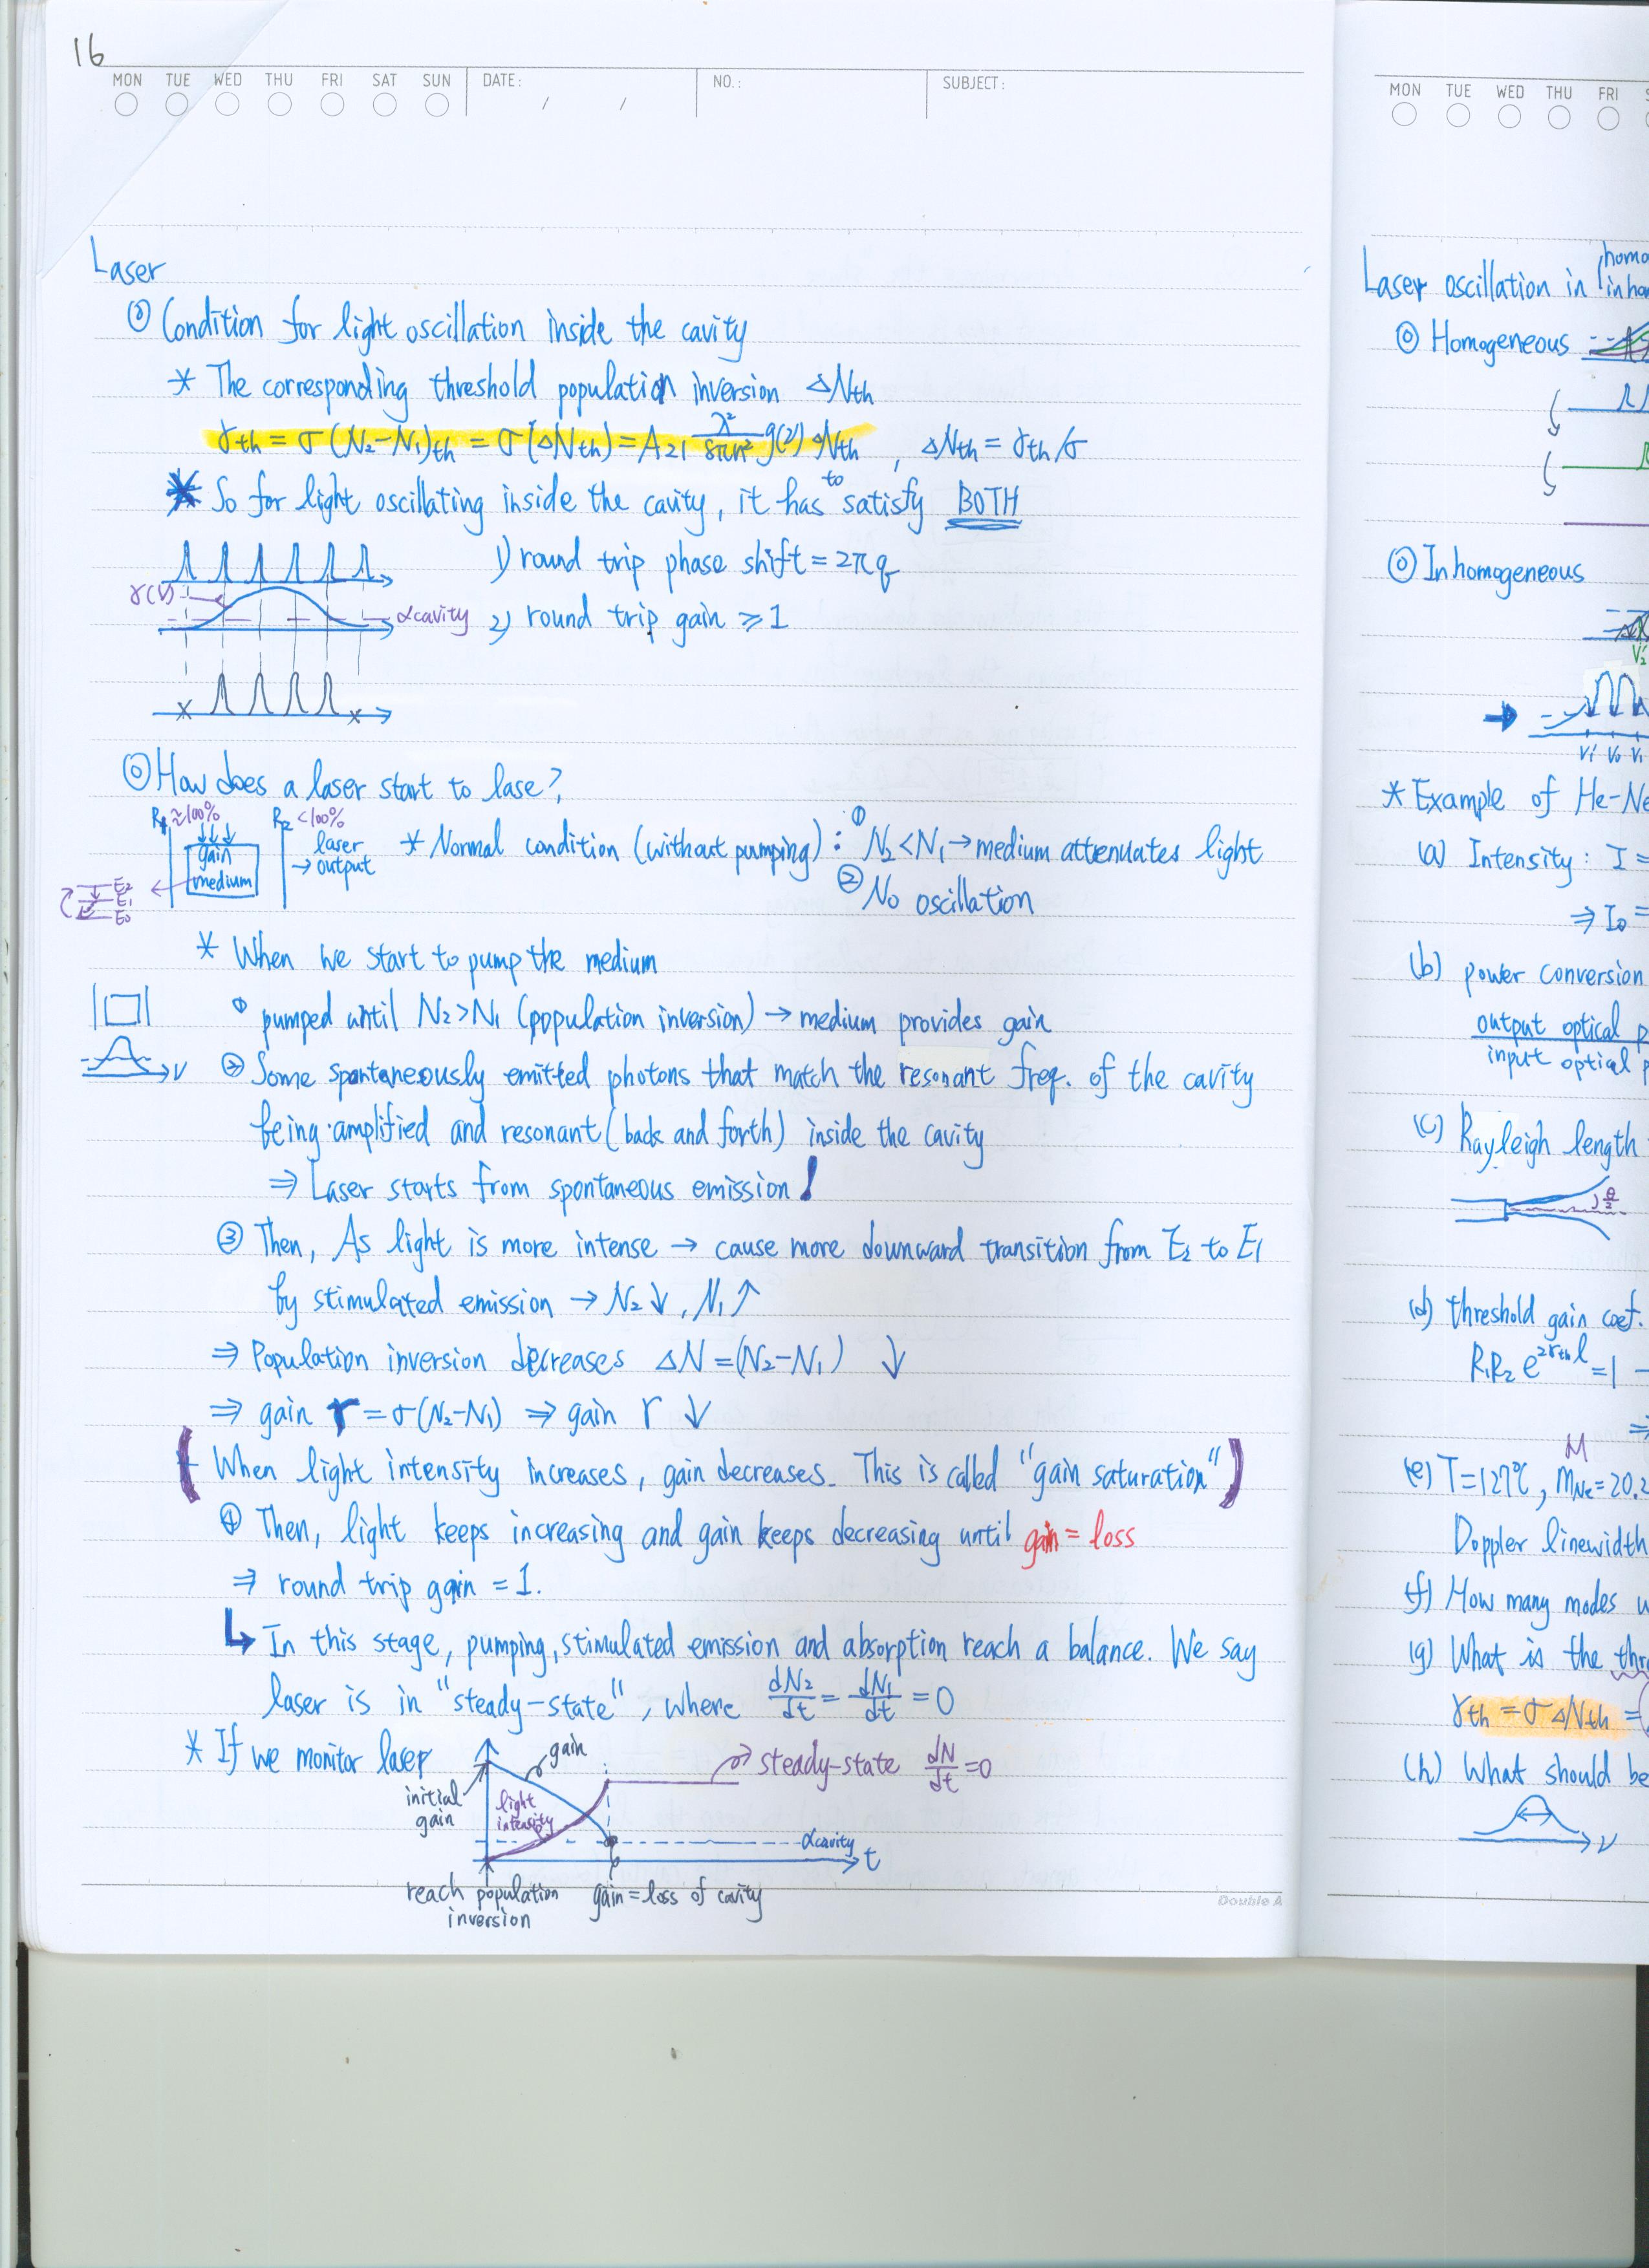 16
MON TUE WED THU FRI SAT SUN DATE: / / NO.: SUBJECT:
Laser
◎ Condition for light oscillation inside the cavity
* The corresponding threshold population inversion ΔNth
γth = σ(N₂-N₁)th = σ(ΔNth) = A₂₁ λ²/8πn² g(ν) ΔNth , ΔNth = γth/σ
* So for light oscillating inside the cavity, it has to satisfy BOTH
1) round trip phase shift = 2πq
γ(ν)
αcavity
2) round trip gain ≥ 1
x x
◎ How does a laser start to lase?
R₁ ≈100% R₂ <100%
gain medium
laser → output
E₂
E₁
E₀
* Normal condition (without pumping) : ① N₂<N₁ → medium attenuates light
② No oscillation
* When we start to pump the medium
① pumped until N₂>N₁ (population inversion) → medium provides gain
ν
② Some spontaneously emitted photons that match the resonant freq. of the cavity
being amplified and resonant (back and forth) inside the cavity
⇒ Laser starts from spontaneous emission!
③ Then, As light is more intense → cause more downward transition from E₂ to E₁
by stimulated emission → N₂↓, N₁↑
⇒ Population inversion decreases ΔN = (N₂-N₁) ↓
⇒ gain r = σ(N₂-N₁) ⇒ gain r ↓
( When light intensity increases, gain decreases. This is called "gain saturation" )
④ Then, light keeps increasing and gain keeps decreasing until gain = loss
⇒ round trip gain = 1.
↳ In this stage, pumping, stimulated emission and absorption reach a balance. We say
laser is in "steady-state", where dN₂/dt = dN₁/dt = 0
* If we monitor laser
gain
→ steady-state dN/dt = 0
initial gain
light intensity
αcavity
t
reach population inversion
gain = loss of cavity
Double A
MON TUE WED THU FRI
Laser oscillation in
◎ Homogeneous
◎ Inhomogeneous
ν₁' ν₀ ν₁
* Example of He-Ne
(a) Intensity : I =
⇒ I₀ =
(b) power conversion
output optical p
input optical p
(c) Rayleigh length
θ/2
(d) threshold gain coef.
R₁R₂ e^{2rth l} = 1
⇒
M
(e) T=127℃, MNe=20.2
Doppler linewidth
(f) How many modes w
(g) What is the thr
γth = σ ΔNth =
(h) What should be
ν